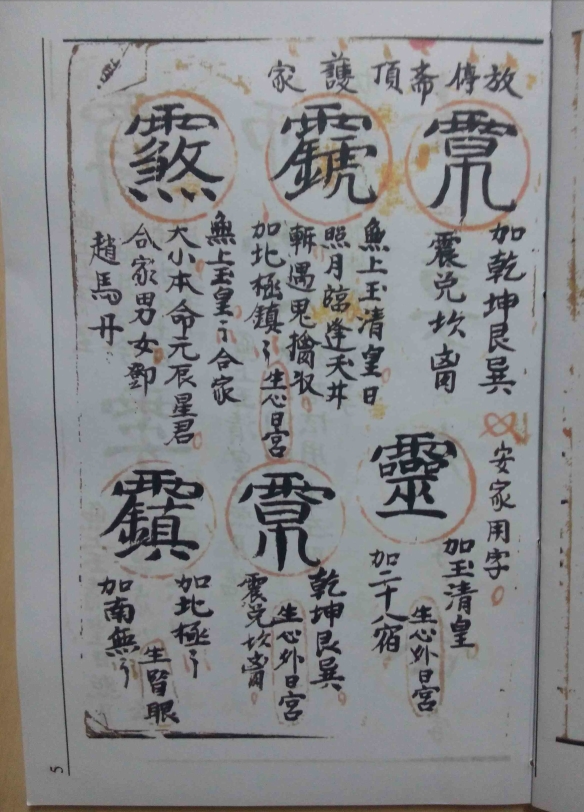 放停斋頂護家
加乾坤艮巽
震兑坎
無上玉清皇日
照月臨逢天井
斬遇鬼擒收
加北極鎮
生心日宮
無上玉皇合家
大小本命元辰星君
合家男女鄧
趙馬丹
安家用字
靈
加玉清皇
生心外日宮
加二十八宿
乾坤艮巽
生心外日宮
震兑坎
加北極
生眼
加南無
5